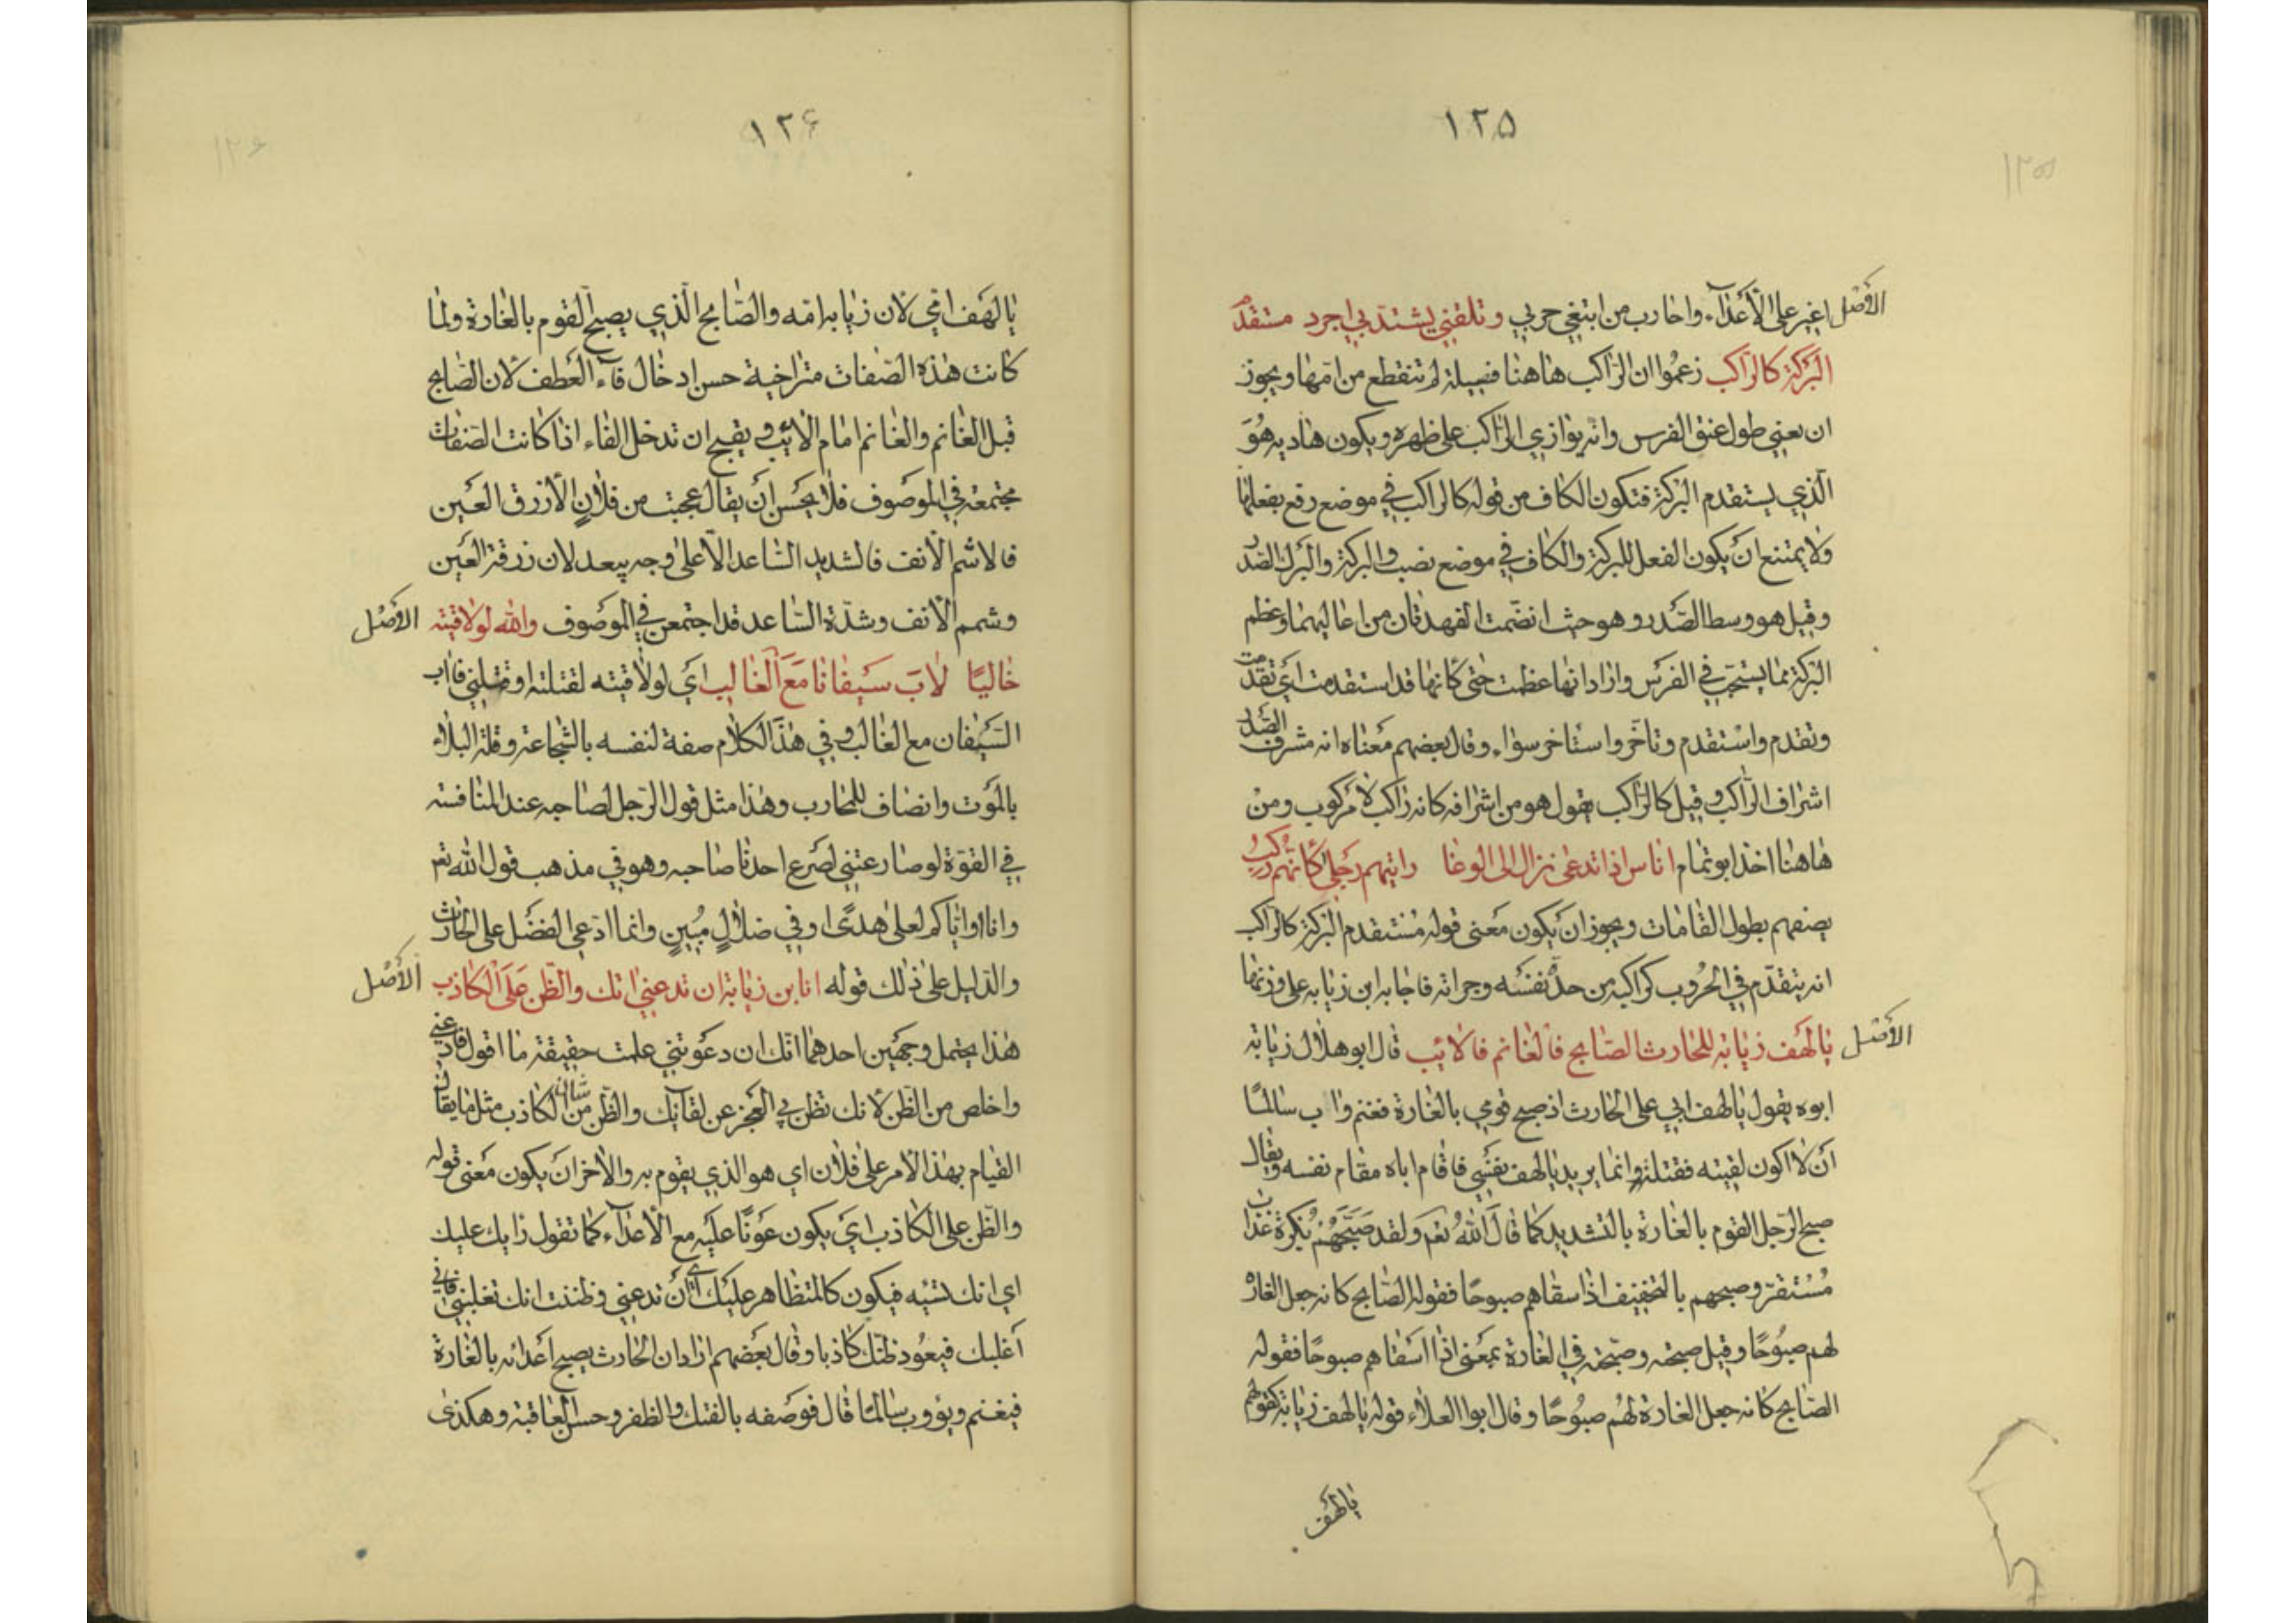 ١٢٥
الأصل اغير على الأعدآء واحارب من ابتغى حربي وتلقني يشتد بي اجرد مستقدم
البركة كالراكب زعموا ان الراكب هاهنا فسيلة لم تنقطع من امها ويجوز
ان يعني طول عنق الفرس وانه يوازي الراكب على ظهره ويكون هاديه هو
الّذي يستقدم البركة فتكون الكاف من قوله كالراكب في موضع رفع بفعلها
ولا يمتنع ان يكون الفعل للبركة والكاف في موضع نصب والبركة والبرك الصدر
وقيل هو وسط الصّدر وهو حيث انضمت الفهدتان من اعاليهما وعظم
البركة مما يستحب في الفرس واراد انها عظمت حتى كانها قد استقدمت اي تقدمت
وتقدم واستقدم وتاخّر واستاخر سواء وقال بعضهم معناه انه مشرف الصّدر
اشراف الراكب وقيل كالراكب يقول هو من اشرافه كانه راكب لا مركوب ومن
هاهنا اخذ ابو تمام اناس اذا تدعى نزال الى الوغا رايتهم رجلى كانهم ركب
يصفهم بطول القامات ويجوز ان يكون معنى قوله مستقدم البركة كالراكب
انه يتقدّم في الحروب كراكبه من حدة نفسه وجراته فاجابه ابن زيابه على وزنها
الأصل يا لهف زيابة للحارث الصّابح فالغانم فالائب قال ابو هلال زيابة
ابوه يقول يا لهف ابي على الحارث اذ صبح قومي بالغارة فغنم واب سالمًا
ان لا اكون لقيته فقتلته وانما يريد يا لهف نفسي فاقام اباه مقام نفسه ويقال
صبح الرّجل القوم بالغارة بالتشديد كما قال اللّه تعم ولقد صبّحهم بكرة عذاب
مستقرّ وصبحهم بالتخفيف اذا سقاهم صبوحًا فقوله الصّابح كانه جعل الغارة
لهم صبوحًا وقيل صبحته وصبّحته في الغارة بمعنى اذا اسقاهم صبوحًا فقوله
الصّابح كانه جعل الغارة لهم صبوحًا وقال ابوا العلاء قوله يا لهف زيابة كقولهم
يا لهف
١٢۶
يا لهف امّي لان زيابة امّه والصّابح الّذي يصبح القوم بالغارة ولما
كانت هذه الصّفات متراخية حسن ادخال فآء العطف لان الصّابح
قبل الغانم والغانم امام الائب ويقبح ان تدخل الفاء اذا كانت الصّفات
مجتمعة في الموصوف فلا يحسن ان يقال عجبت من فلان الأزرق العين
فالاشم الأنف فالشديد الساعد الّا على وجه يبعد لان زرقة العين
وشمم الأنف وشدّة السّاعد قد اجتمعن في الموصوف والله لو لاقيته الأصل
خاليًا لاب سيفانا مع الغالب اي لو لاقيته لقتلته او قتلني فاب
السّيفان مع الغالب وفي هذا الكلام صفة لنفسه بالشّجاعة وقلة البلاء
بالموت وانصاف للمحارب وهذا مثل قول الرّجل لصاحبه عند المنافسة
في القوّة لو صارعتني لصرع احدنا صاحبه وهو في مذهب قول الله تعم
وانا او ايّاكم لعلى هدًى او في ضلالٍ مبينٍ وانما ادّعى الفضل على الحارث
والدّليل على ذلك قوله انا ابن زيابة ان تدعني اتك والظّن على الكاذب الأصل
هذا يحتمل وجهين احدهما انّك ان دعوتني علمت حقيقة ما اقول فادعني
واخلص من الظّن لانك تظن بي العجز عن لقآئك والظّن من شان الكاذب مثل ما يقال
القيام بهذا الأمر على فلان اي هو الذي يقوم به والاخر ان يكون معنى قوله
والظّن على الكاذب اي يكون عونًا عليه مع الأعدآء كما تقول رايك عليك
اي انك تسيء فيكون كالمتظاهر عليك اي ان تدعني وظننت انك تغلبني فاني
أغلبك فيعود ظنّك كاذبا وقال بعضهم اراد ان الحارث يصبح اعدائه بالغارة
فيغنم ويؤوب سالمًا قال فوصفه بالفتك والظفر وحسن العاقبة وهكذى